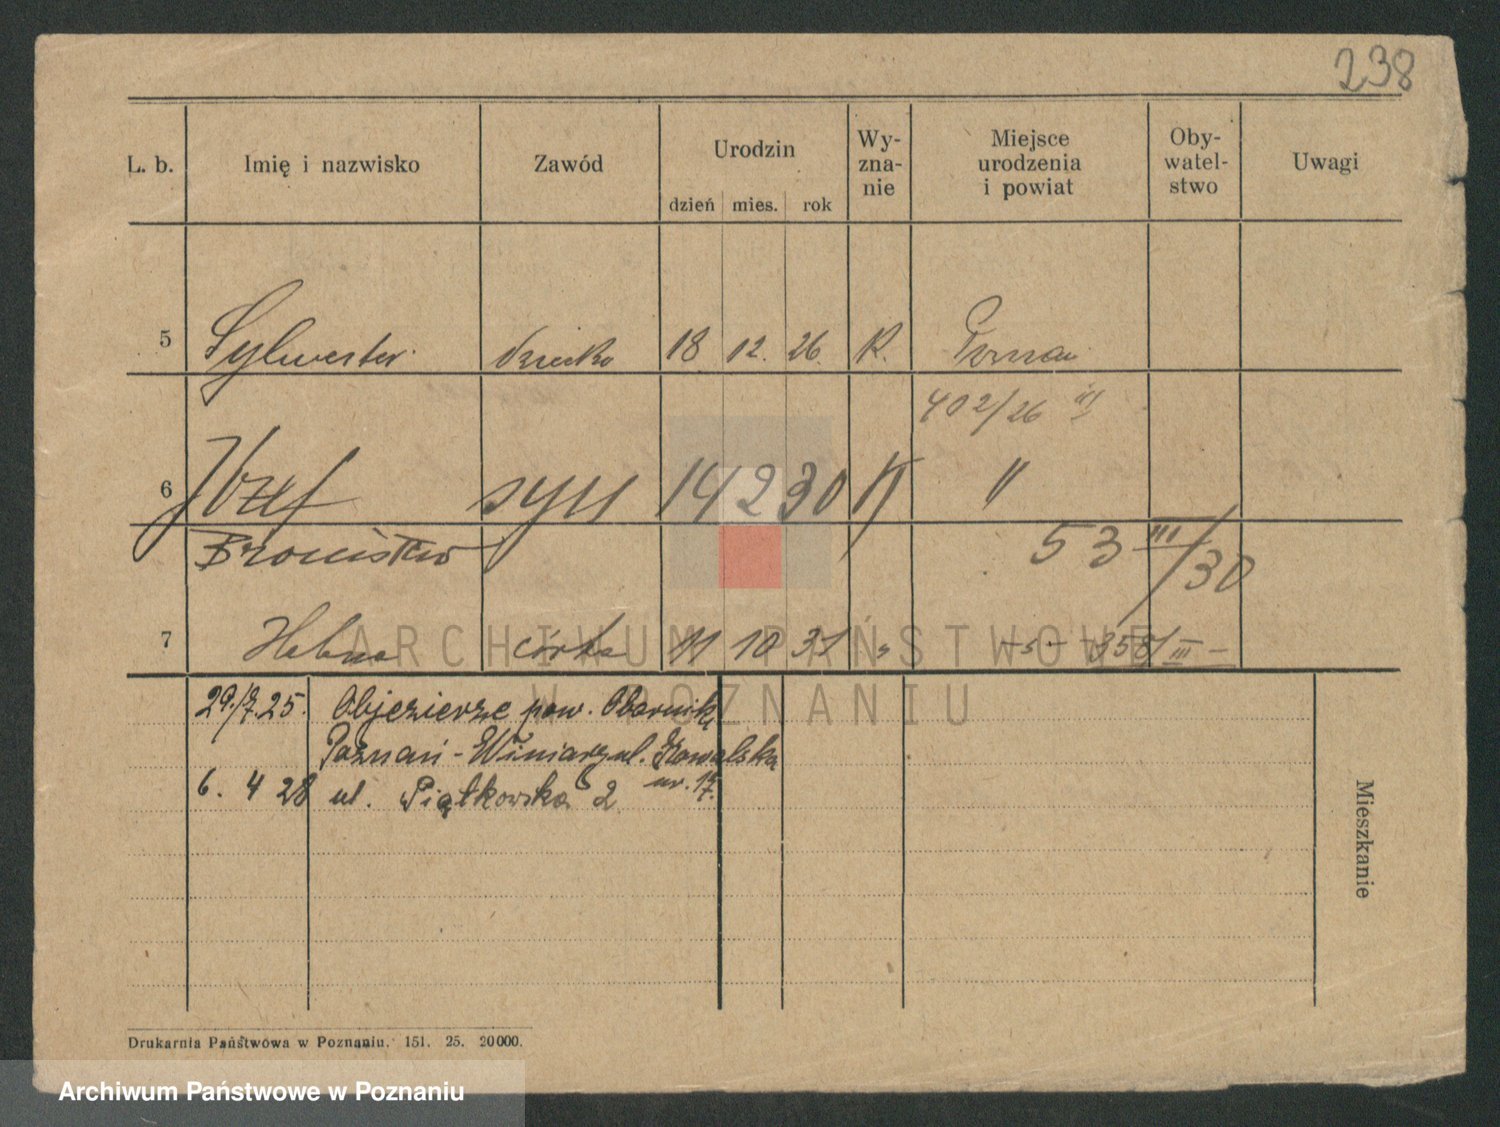 238
L. b. Imię i nazwisko Zawód Urodzin Wy-zna-nie Miejsce urodzenia i powiat Oby-watel-stwo Uwagi
dzień mies. rok
5 Sylwester dziecko 18 12. 26. K. Poznań
402/26 III
6 Józef syn 14 2 30 K "
Bronisław 53 III/30
7 Helena córka 11 10 31 " 358/III
29./7.25. Objezierze pow. Oborniki
Poznań-Winiary ul. Kowalska
nr. 17.
6. 4 28 ul. Piątkowska 2
Mieszkanie
Drukarnia Państwowa w Poznaniu. 151. 25. 20000.
ARCHIWUM PAŃSTWOWE
W POZNANIU
Archiwum Państwowe w Poznaniu